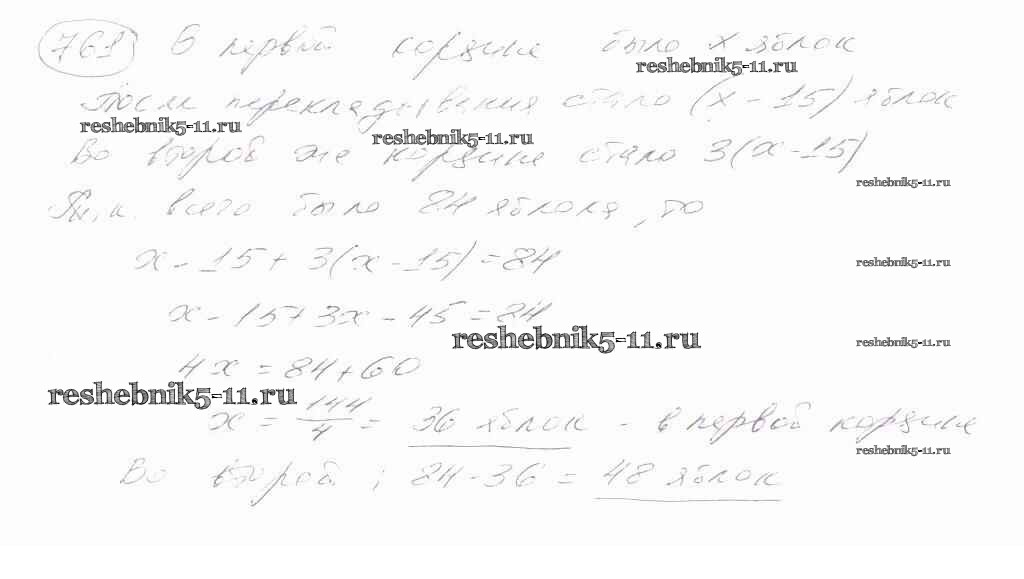 761 В первой корзине было x яблок
reshebnik5-11.ru
После перекладывания стало (x - 15) яблок
reshebnik5-11.ru
reshebnik5-11.ru
Во второй же корзине стало 3(x - 15)
reshebnik5-11.ru
Т.к. всего было 84 яблока, то
x - 15 + 3(x - 15) = 84
reshebnik5-11.ru
x - 15 + 3x - 45 = 84
reshebnik5-11.ru
reshebnik5-11.ru
4x = 84 + 60
reshebnik5-11.ru
x = 144/4 = 36 яблок - в первой корзине
reshebnik5-11.ru
Во второй: 84 - 36 = 48 яблок